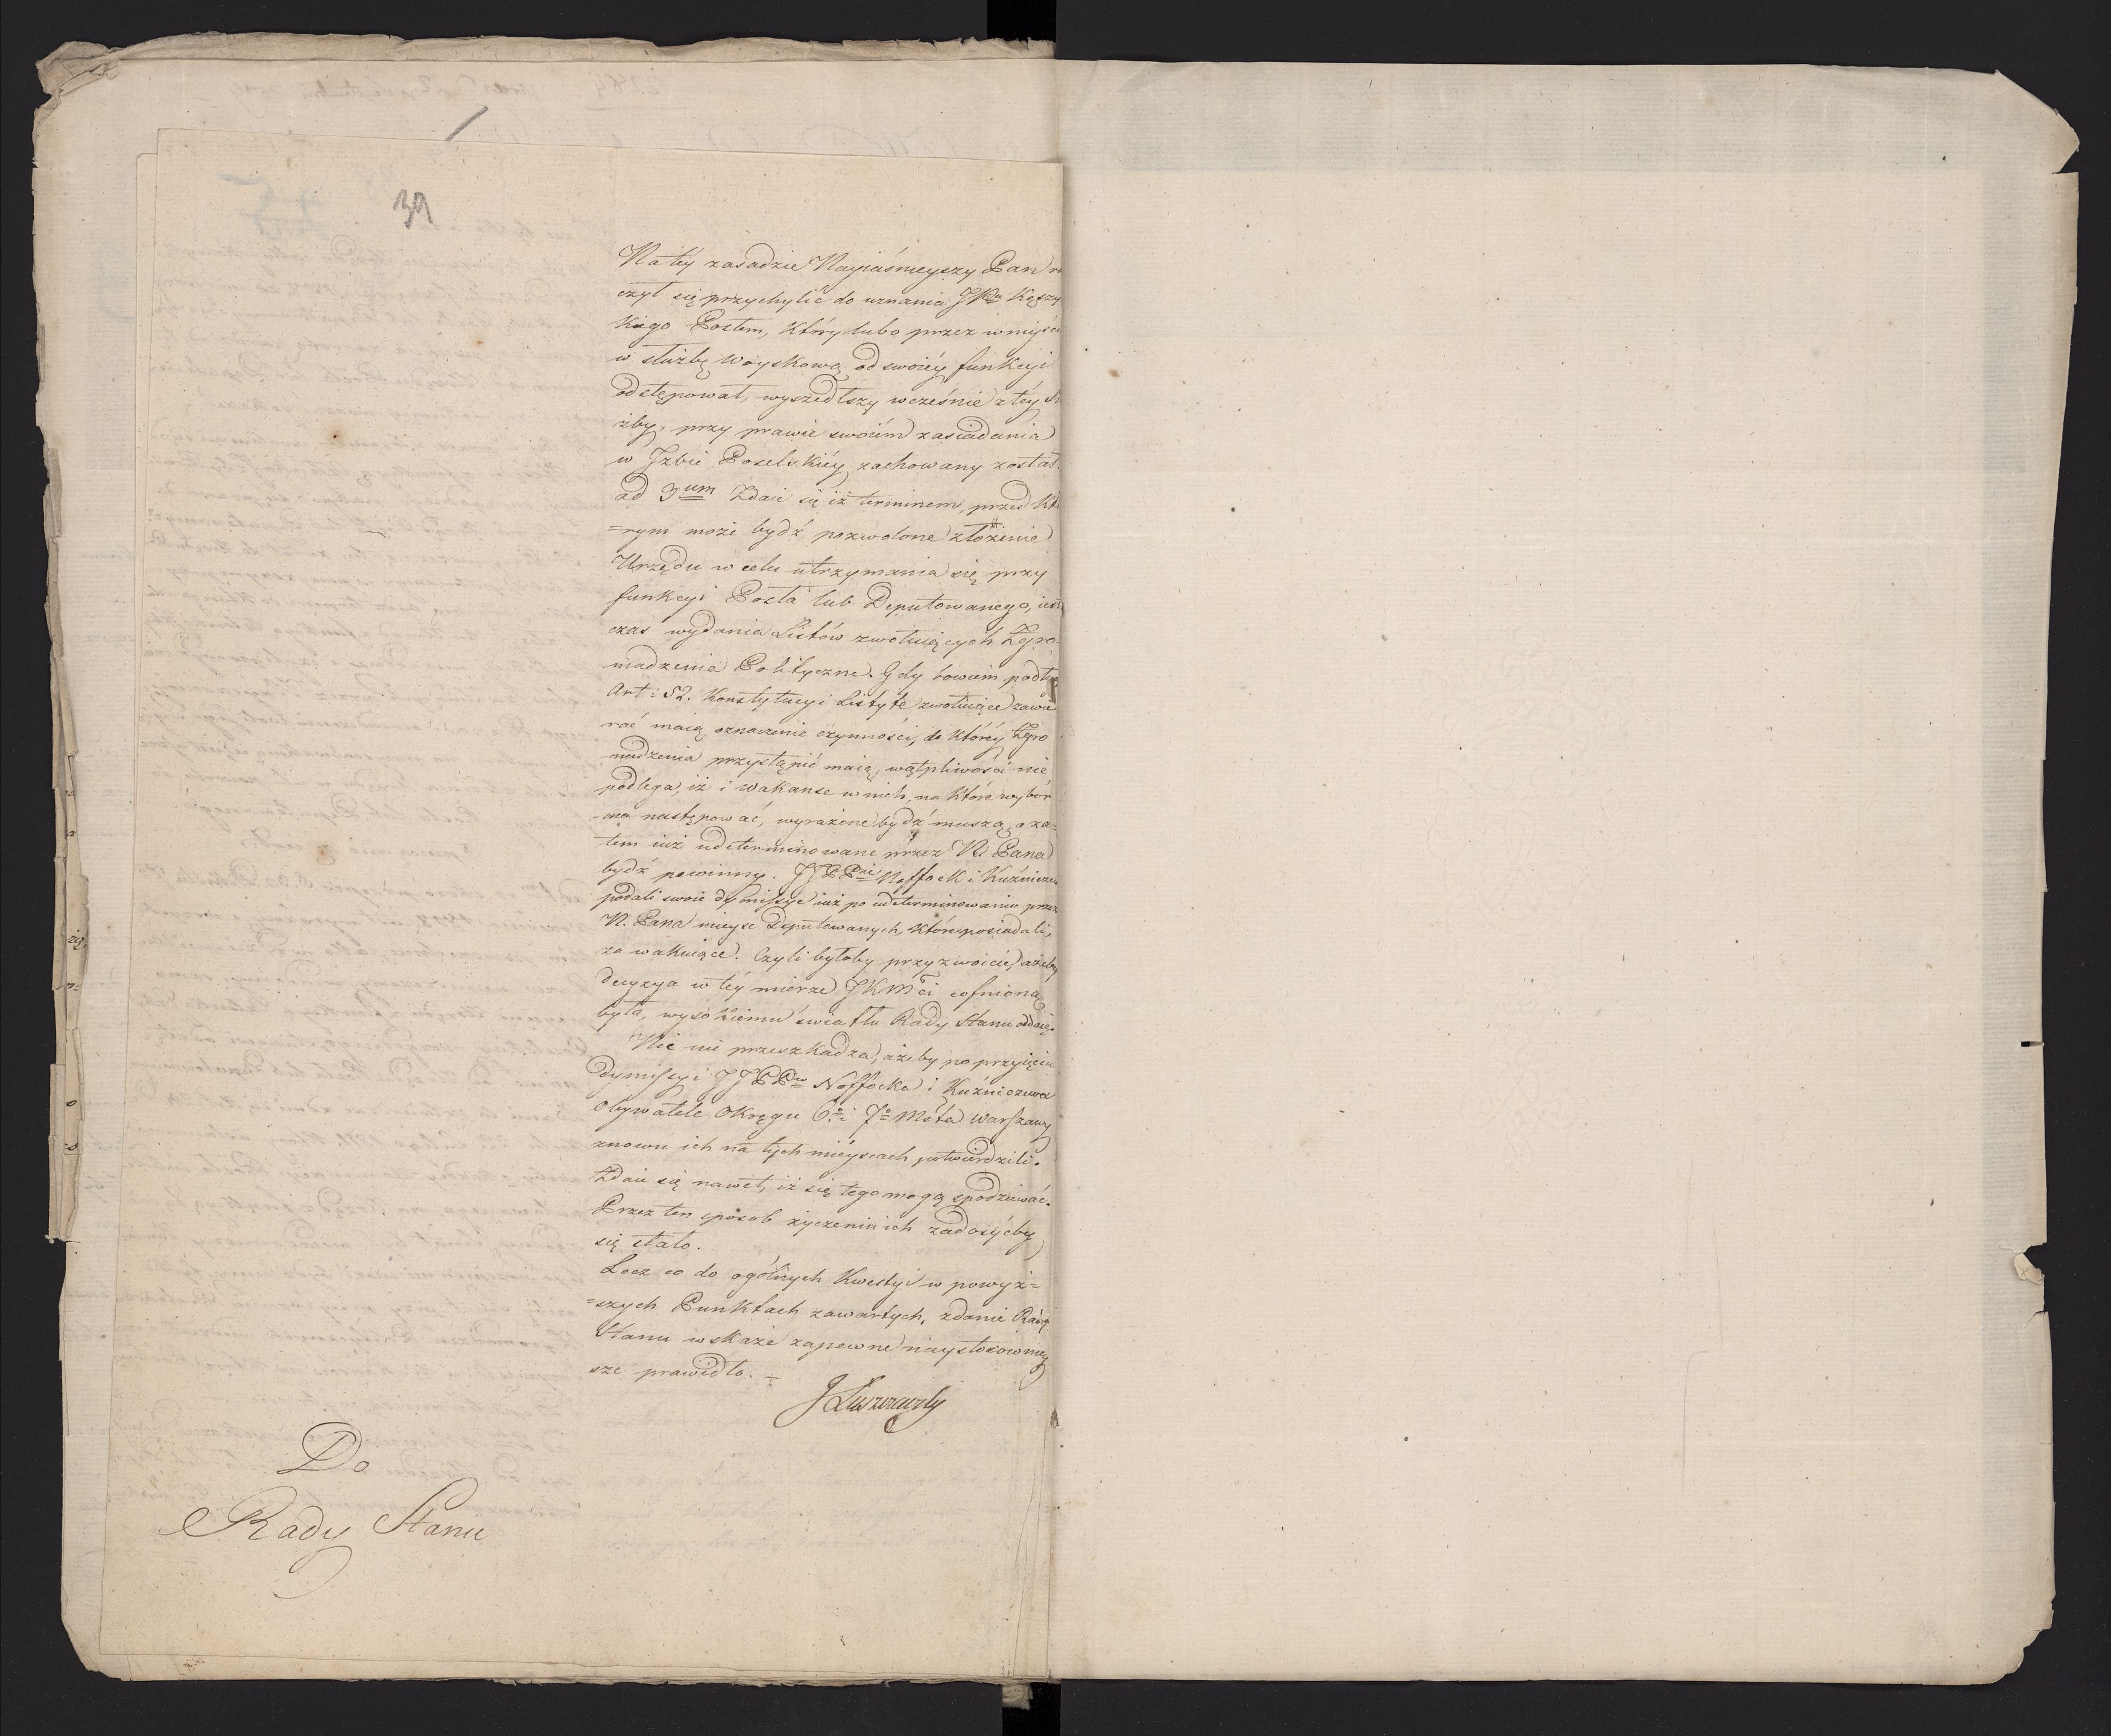 39
Na téy zasadzie Nayiaśnieyszy Pan ra
czył się przychylić do uznania JPna Kęszy
kiego Posłem, który lubo przez wniyście
w służbę woyskową od swoiéy funkcyi
odstępował, wyszedłszy wcześnie z téy słu
żby, przy prawie swoiém zasiadania
w Izbie Poselskiéy zachowany został.
ad 3um Zdaie się iż terminem, przed któ
=rym może bydź pozwolone złożenie
Urzędu w celu utrzymania się przy
funkcyi Posła lub Deputowanego, iest
czas wydania Listów zwołuiących Zgro
madzenia Polityczne. Gdy bowiem podług
Art: 52. Konstytucyi Listy te zwołuiące zawie
rać maią oznaczenie czynności, do któréy Zgro
madzenia przystąpić maią, wątpliwości nie
podlega, iż i wakanse w nich, na które wybór
ma następować, wyrażone bydź muszą, a za=
tem iuż udeterminowane przez N. Pana
bydź powinny. JJPPnie Noffok i Kuźniczew
podali swoie dymissye iuż po udeterminowaniu przez
N. Pana mieysc Deputowanych, które posiadali,
za wakuiące. Czyli byłoby przyzwoicie, ażeby
decyzya w téy mierze JKMci cofnioną
była, wysokiemu światłu Rady Stanu oddaię.
Nic nie przeszkadza, ażeby po przyięciu
dymissyi JJPPw Noffoka i Kuźniczewa
Obywatele Okręgu 6o i 7o Msta Warszawy
znowu ich na tych mieyscach potwierdzili.
Zdaie się nawet, iż się tego mogą spodziewać.
Przez ten sposób życzeniu ich zadosyćby
się stało.
Lecz co do ogólnych Kwestyi w powyż=
=szych Punktach zawartych, zdanie Rady
Stanu wskaże zapewne naystosowniey
sze prawidło.
Do
Rady Stanu